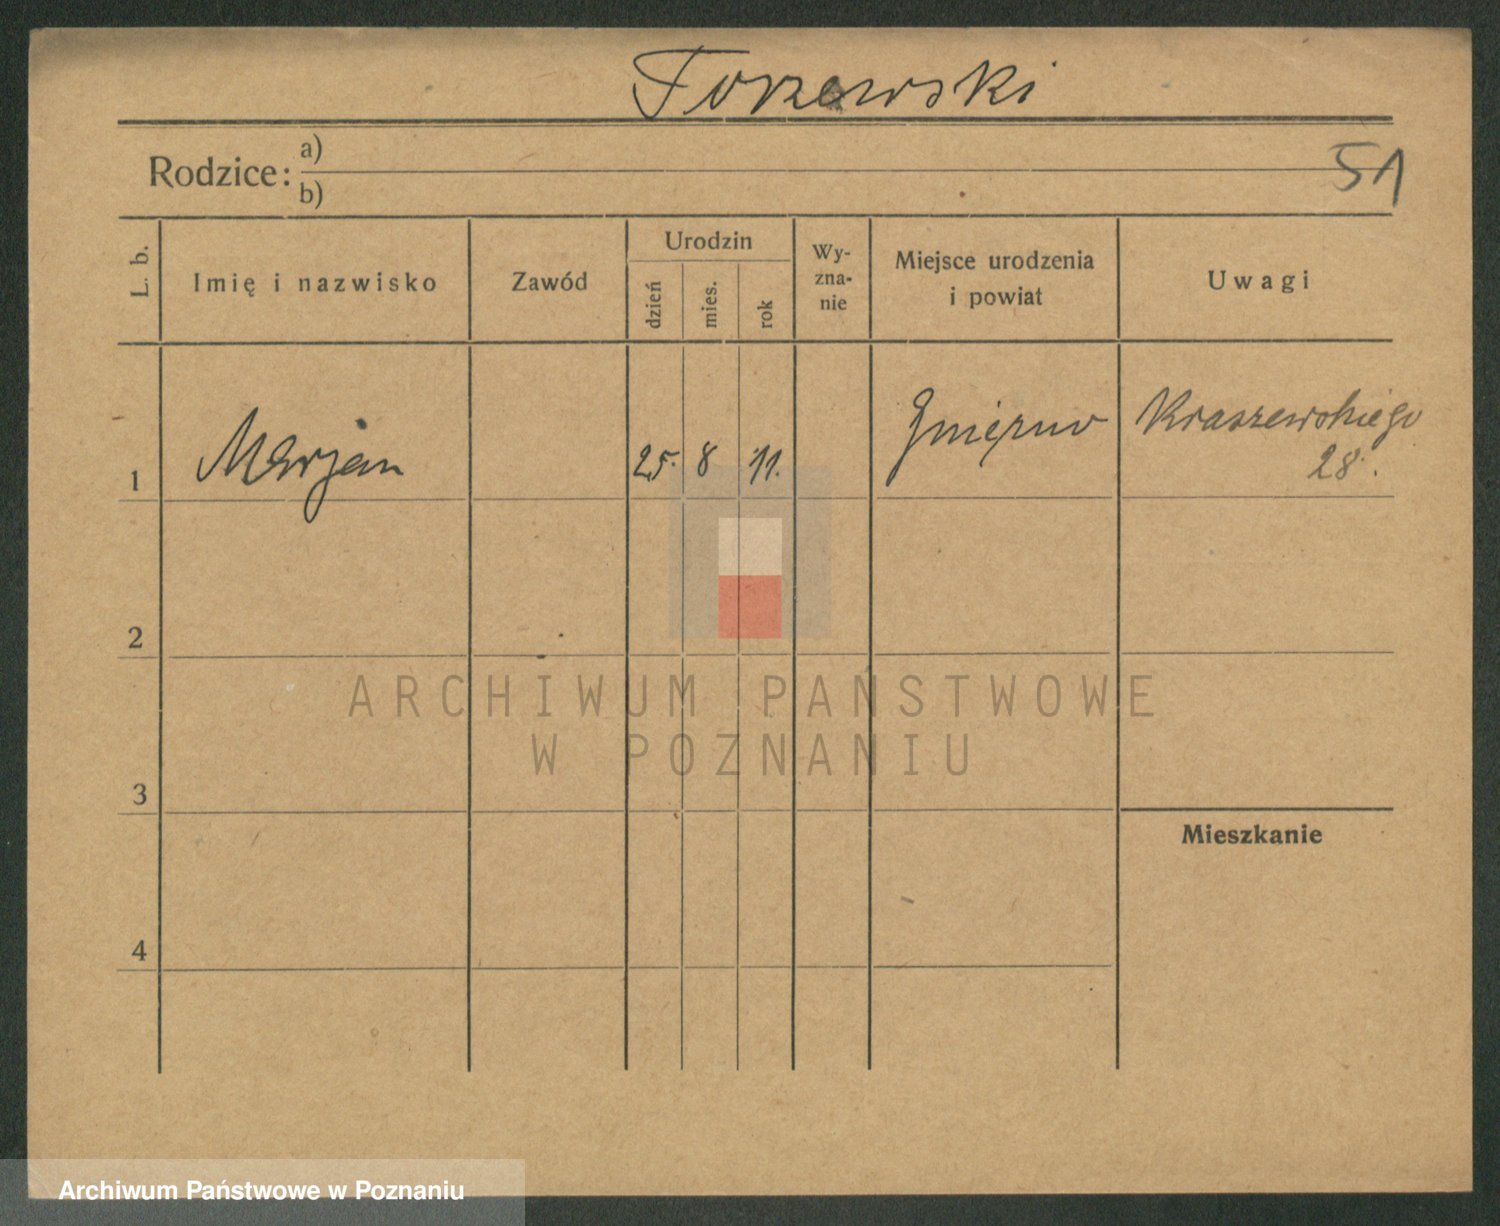 Torzewski
Rodzice: a)
b)
51
L. b.
Imię i nazwisko
Zawód
Urodzin
dzień
mies.
rok
Wy-
zna-
nie
Miejsce urodzenia
i powiat
Uwagi
1 Marjan 25. 8 11. Kraszewskiego
28.
2
ARCHIWUM PAŃSTWOWE
W POZNANIU
3
Mieszkanie
4
Archiwum Państwowe w Poznaniu